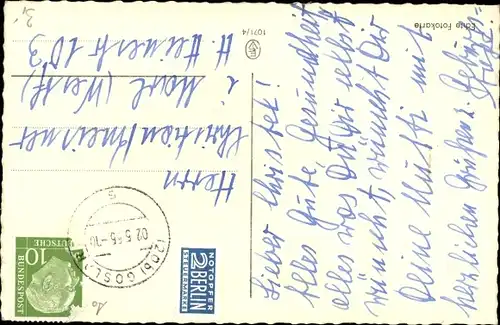 Echte Fotokarte
1071/4
Lieber Christel!
Alles Gute, Gesundheit
alles was Du Dir selbst
wünscht, wünscht Dir
Deine Mutti mit
herzlichen Grüßen u.
Herrn
Christian Kneisner
i. Marl (Westf)
H. Heinestr 103
(20b) GOSLAR
02.5.55.-10
DEUTSCHE
BUNDESPOST
10
NOTOPFER
2 BERLIN
STEUERMARKE